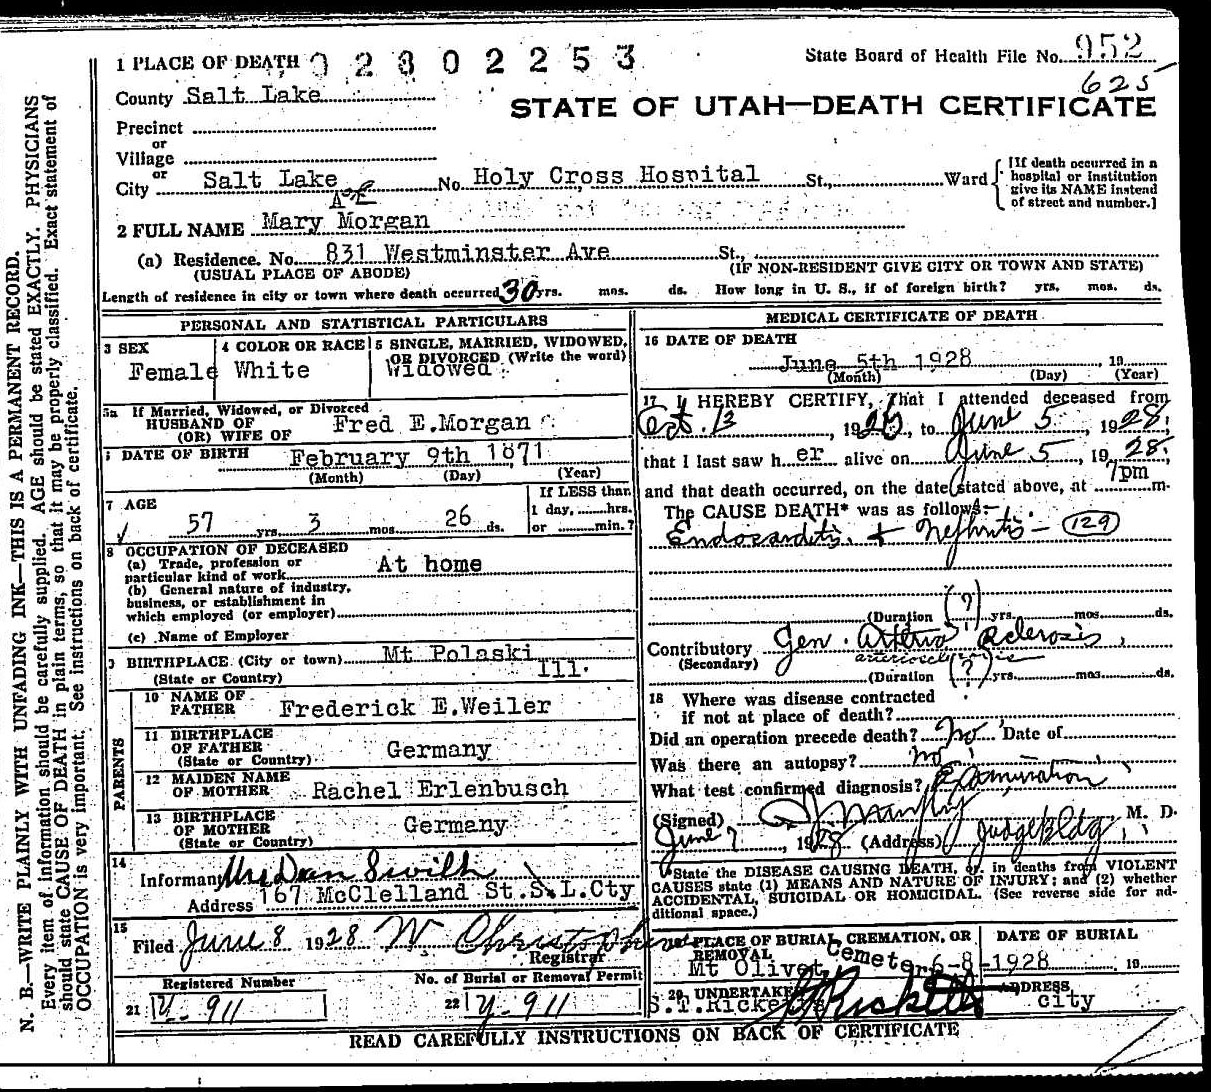 1 PLACE OF DEATH 02802253
State Board of Health File No. 952
625
County Salt Lake
STATE OF UTAH—DEATH CERTIFICATE
Precinct
or
Village
or
City Salt Lake No. Holy Cross Hospital St., Ward
[If death occurred in a hospital or institution give its NAME instead of street and number.]
2 FULL NAME Mary Morgan
(a) Residence. No. 831 Westminster Ave St.,
(USUAL PLACE OF ABODE) (IF NON-RESIDENT GIVE CITY OR TOWN AND STATE)
Length of residence in city or town where death occurred 30 yrs. mos. ds. How long in U. S., if of foreign birth? yrs. mos. ds.
PERSONAL AND STATISTICAL PARTICULARS
3 SEX
Female
4 COLOR OR RACE
White
5 SINGLE, MARRIED, WIDOWED, OR DIVORCED (Write the word)
Widowed
5a If Married, Widowed, or Divorced
HUSBAND OF
(OR) WIFE OF Fred E.Morgan
DATE OF BIRTH February 9th 1871
(Month) (Day) (Year)
7 AGE
57 yrs. 3 mos. 26 ds.
If LESS than
1 day, hrs.
or min.?
8 OCCUPATION OF DECEASED
(a) Trade, profession or
particular kind of work At home
(b) General nature of industry,
business, or establishment in
which employed (or employer)
(c) Name of Employer
9 BIRTHPLACE (City or town) Mt Polaski
(State or Country) Ill.
PARENTS
10 NAME OF
FATHER Frederick E.Weiler
11 BIRTHPLACE
OF FATHER Germany
(State or Country)
12 MAIDEN NAME
OF MOTHER Rachel Erlenbusch
13 BIRTHPLACE
OF MOTHER Germany
(State or Country)
14
Informant Mrs Dean
Address 167 McClelland St.S.L.Cty
15
Filed June 8 1928 W Christopherson
Registrar
Registered Number
21 Y-911
No. of Burial or Removal Permit
22 Y-911
MEDICAL CERTIFICATE OF DEATH
16 DATE OF DEATH
June 5th 1928 19
(Month) (Day) (Year)
17 I HEREBY CERTIFY, That I attended deceased from
Oct. 13, 1926, to June 5, 1928;
that I last saw her alive on June 5, 1928;
and that death occurred, on the date stated above, at 7pm m.
The CAUSE DEATH* was as follows:—
Endocarditis + Nephritis— 129
(Duration (?) yrs. mos. ds.
Contributory Gen. Arterio Sclerosis,
(Secondary) arteriosclerosis
(Duration (?) yrs. mos. ds.
18 Where was disease contracted
if not at place of death?
Did an operation precede death? No Date of
Was there an autopsy? no
What test confirmed diagnosis? Examination
(Signed) M. D.
June 7 1928 (Address) Judge Bldg,
*State the DISEASE CAUSING DEATH, or, in deaths from VIOLENT
CAUSES state (1) MEANS AND NATURE OF INJURY; and (2) whether
ACCIDENTAL, SUICIDAL OR HOMICIDAL. (See reverse side for ad-
ditional space.)
PLACE OF BURIAL, CREMATION, OR REMOVAL
Mt Olivet Cemetery
DATE OF BURIAL
6-8-1928 19
20 UNDERTAKER
S.T.Ricketts
ADDRESS
city
READ CAREFULLY INSTRUCTIONS ON BACK OF CERTIFICATE
N. B.—WRITE PLAINLY WITH UNFADING INK—THIS IS A PERMANENT RECORD.
Every item of information should be carefully supplied. AGE should be stated EXACTLY. PHYSICIANS
should state CAUSE OF DEATH in plain terms, so that it may be properly classified. Exact statement of
OCCUPATION is very important. See instructions on back of certificate.